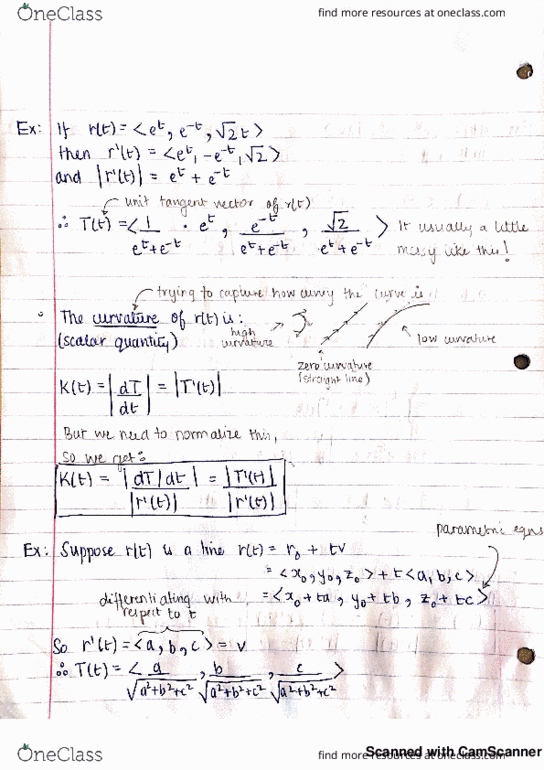 OneClass
find more resources at oneclass.com
Ex: If r(t) = <eᵗ, e⁻ᵗ, √2t>
then r'(t) = <eᵗ, -e⁻ᵗ, √2>
and |r'(t)| = eᵗ + e⁻ᵗ
unit tangent vector of r(t)
∴ T(t) = <1/(eᵗ+e⁻ᵗ) · eᵗ, e⁻ᵗ/(eᵗ+e⁻ᵗ), √2/(eᵗ+e⁻ᵗ)> It usually a little
messy like this!
trying to capture how curvy the curve is
The curvature of r(t) is:
(scalar quantity)
high curvature
low curvature
zero curvature
(straight line)
K(t) = |dT/dt| = |T'(t)|
But we need to normalize this,
so we get:
K(t) = |dT/dt|/|r'(t)| = |T'(t)|/|r'(t)|
parametric eqns
Ex: Suppose r(t) is a line r(t) = r₀ + tv
= <x₀, y₀, z₀> + t<a, b, c>
= <x₀ + ta, y₀ + tb, z₀ + tc>
differentiating with
respect to t
So r'(t) = <a, b, c> = v
∴ T(t) = <a/√(a²+b²+c²), b/√(a²+b²+c²), c/√(a²+b²+c²)>
OneClass
find more resources at oneclass.com
Scanned with CamScanner